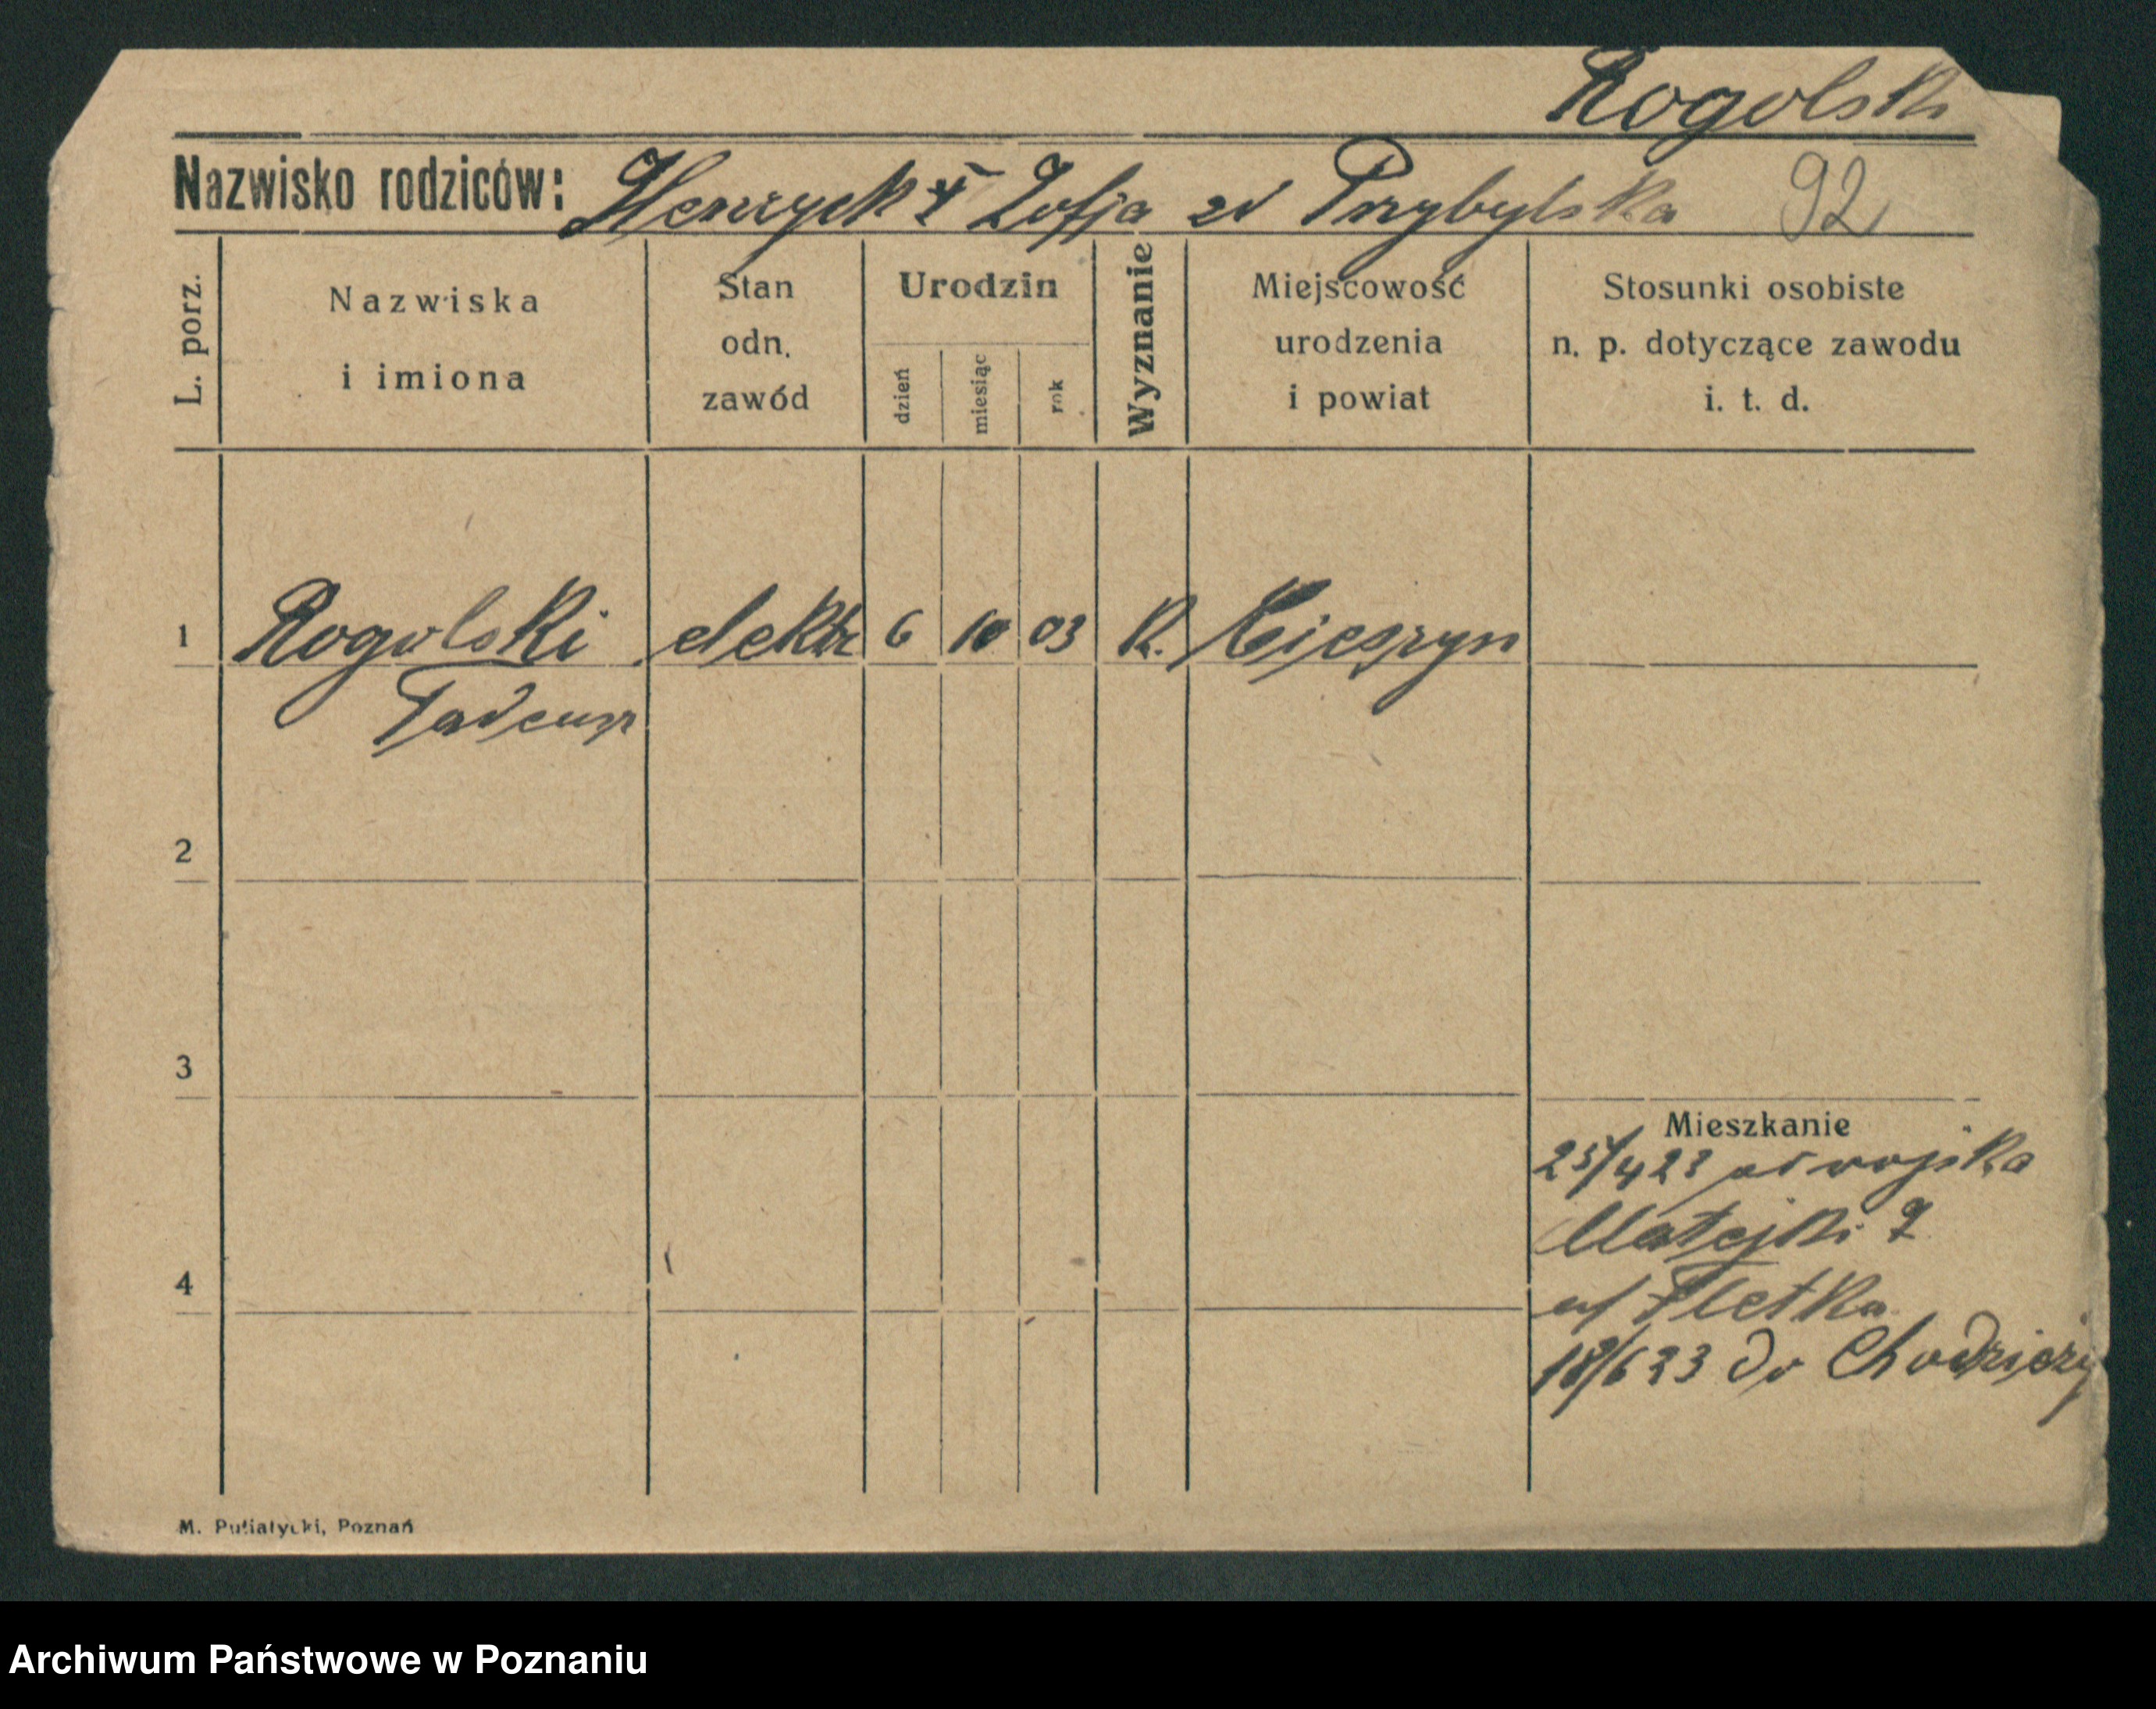 Rogolski
Nazwisko rodziców: Henryck i Zofja zd Przybylska 92
L. porz. Nazwiska i imiona Stan odn. zawód Urodzin dzień miesiąc rok Wyznanie Miejscowość urodzenia i powiat Stosunki osobiste n. p. dotyczące zawodu i. t. d.
1 Rogolski elektr 6 10 03 K. Cieszyn
Tadeusz
2
3
Mieszkanie
25/4 23 od wojska
Matejki
4
18/6 23 do Chodzieży
M. Putiatycki, Poznań
Archiwum Państwowe w Poznaniu